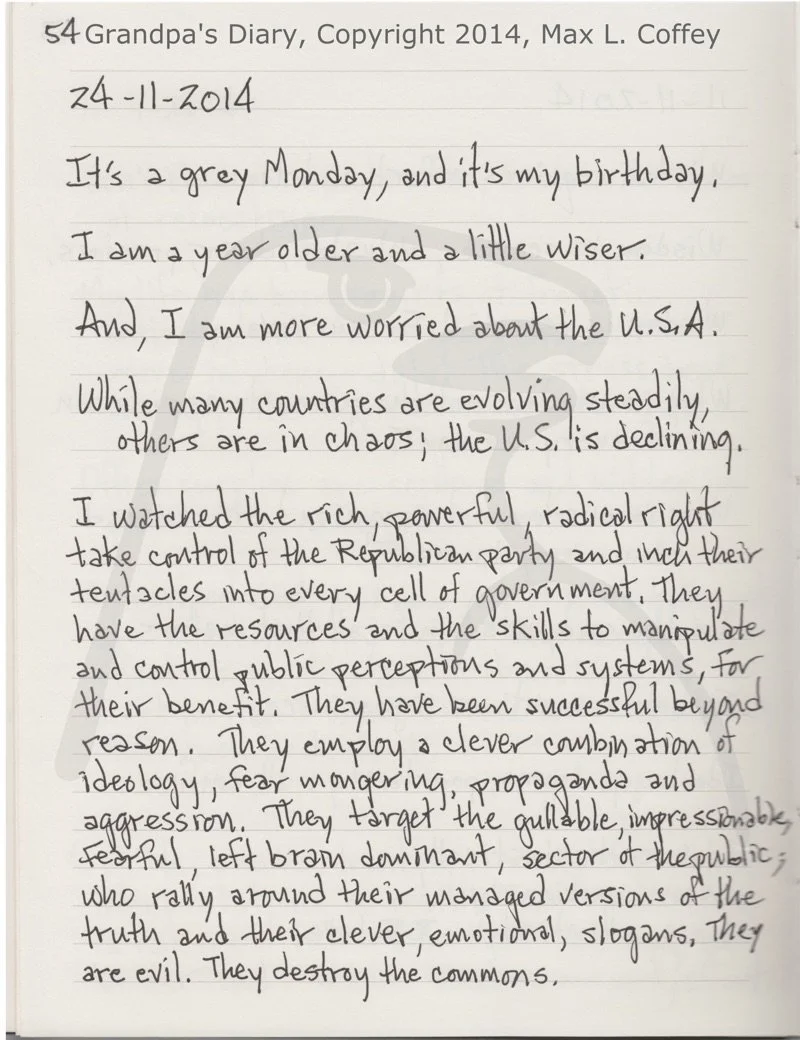 54 Grandpa's Diary, Copyright 2014, Max L. Coffey
24-11-2014
It's a grey Monday, and it's my birthday.
I am a year older and a little wiser.
And, I am more worried about the U.S.A.
While many countries are evolving steadily,
others are in chaos; the U.S. is declining.
I watched the rich, powerful, radical right
take control of the Republican party and inch their
tentacles into every cell of government. They
have the resources and the skills to manipulate
and control public perceptions and systems, for
their benefit. They have been successful beyond
reason. They employ a clever combination of
ideology, fear mongering, propaganda and
aggression. They target the gullable, impressionable,
fearful, left brain dominant, sector of the public;
who rally around their managed versions of the
truth and their clever, emotional, slogans. They
are evil. They destroy the commons.